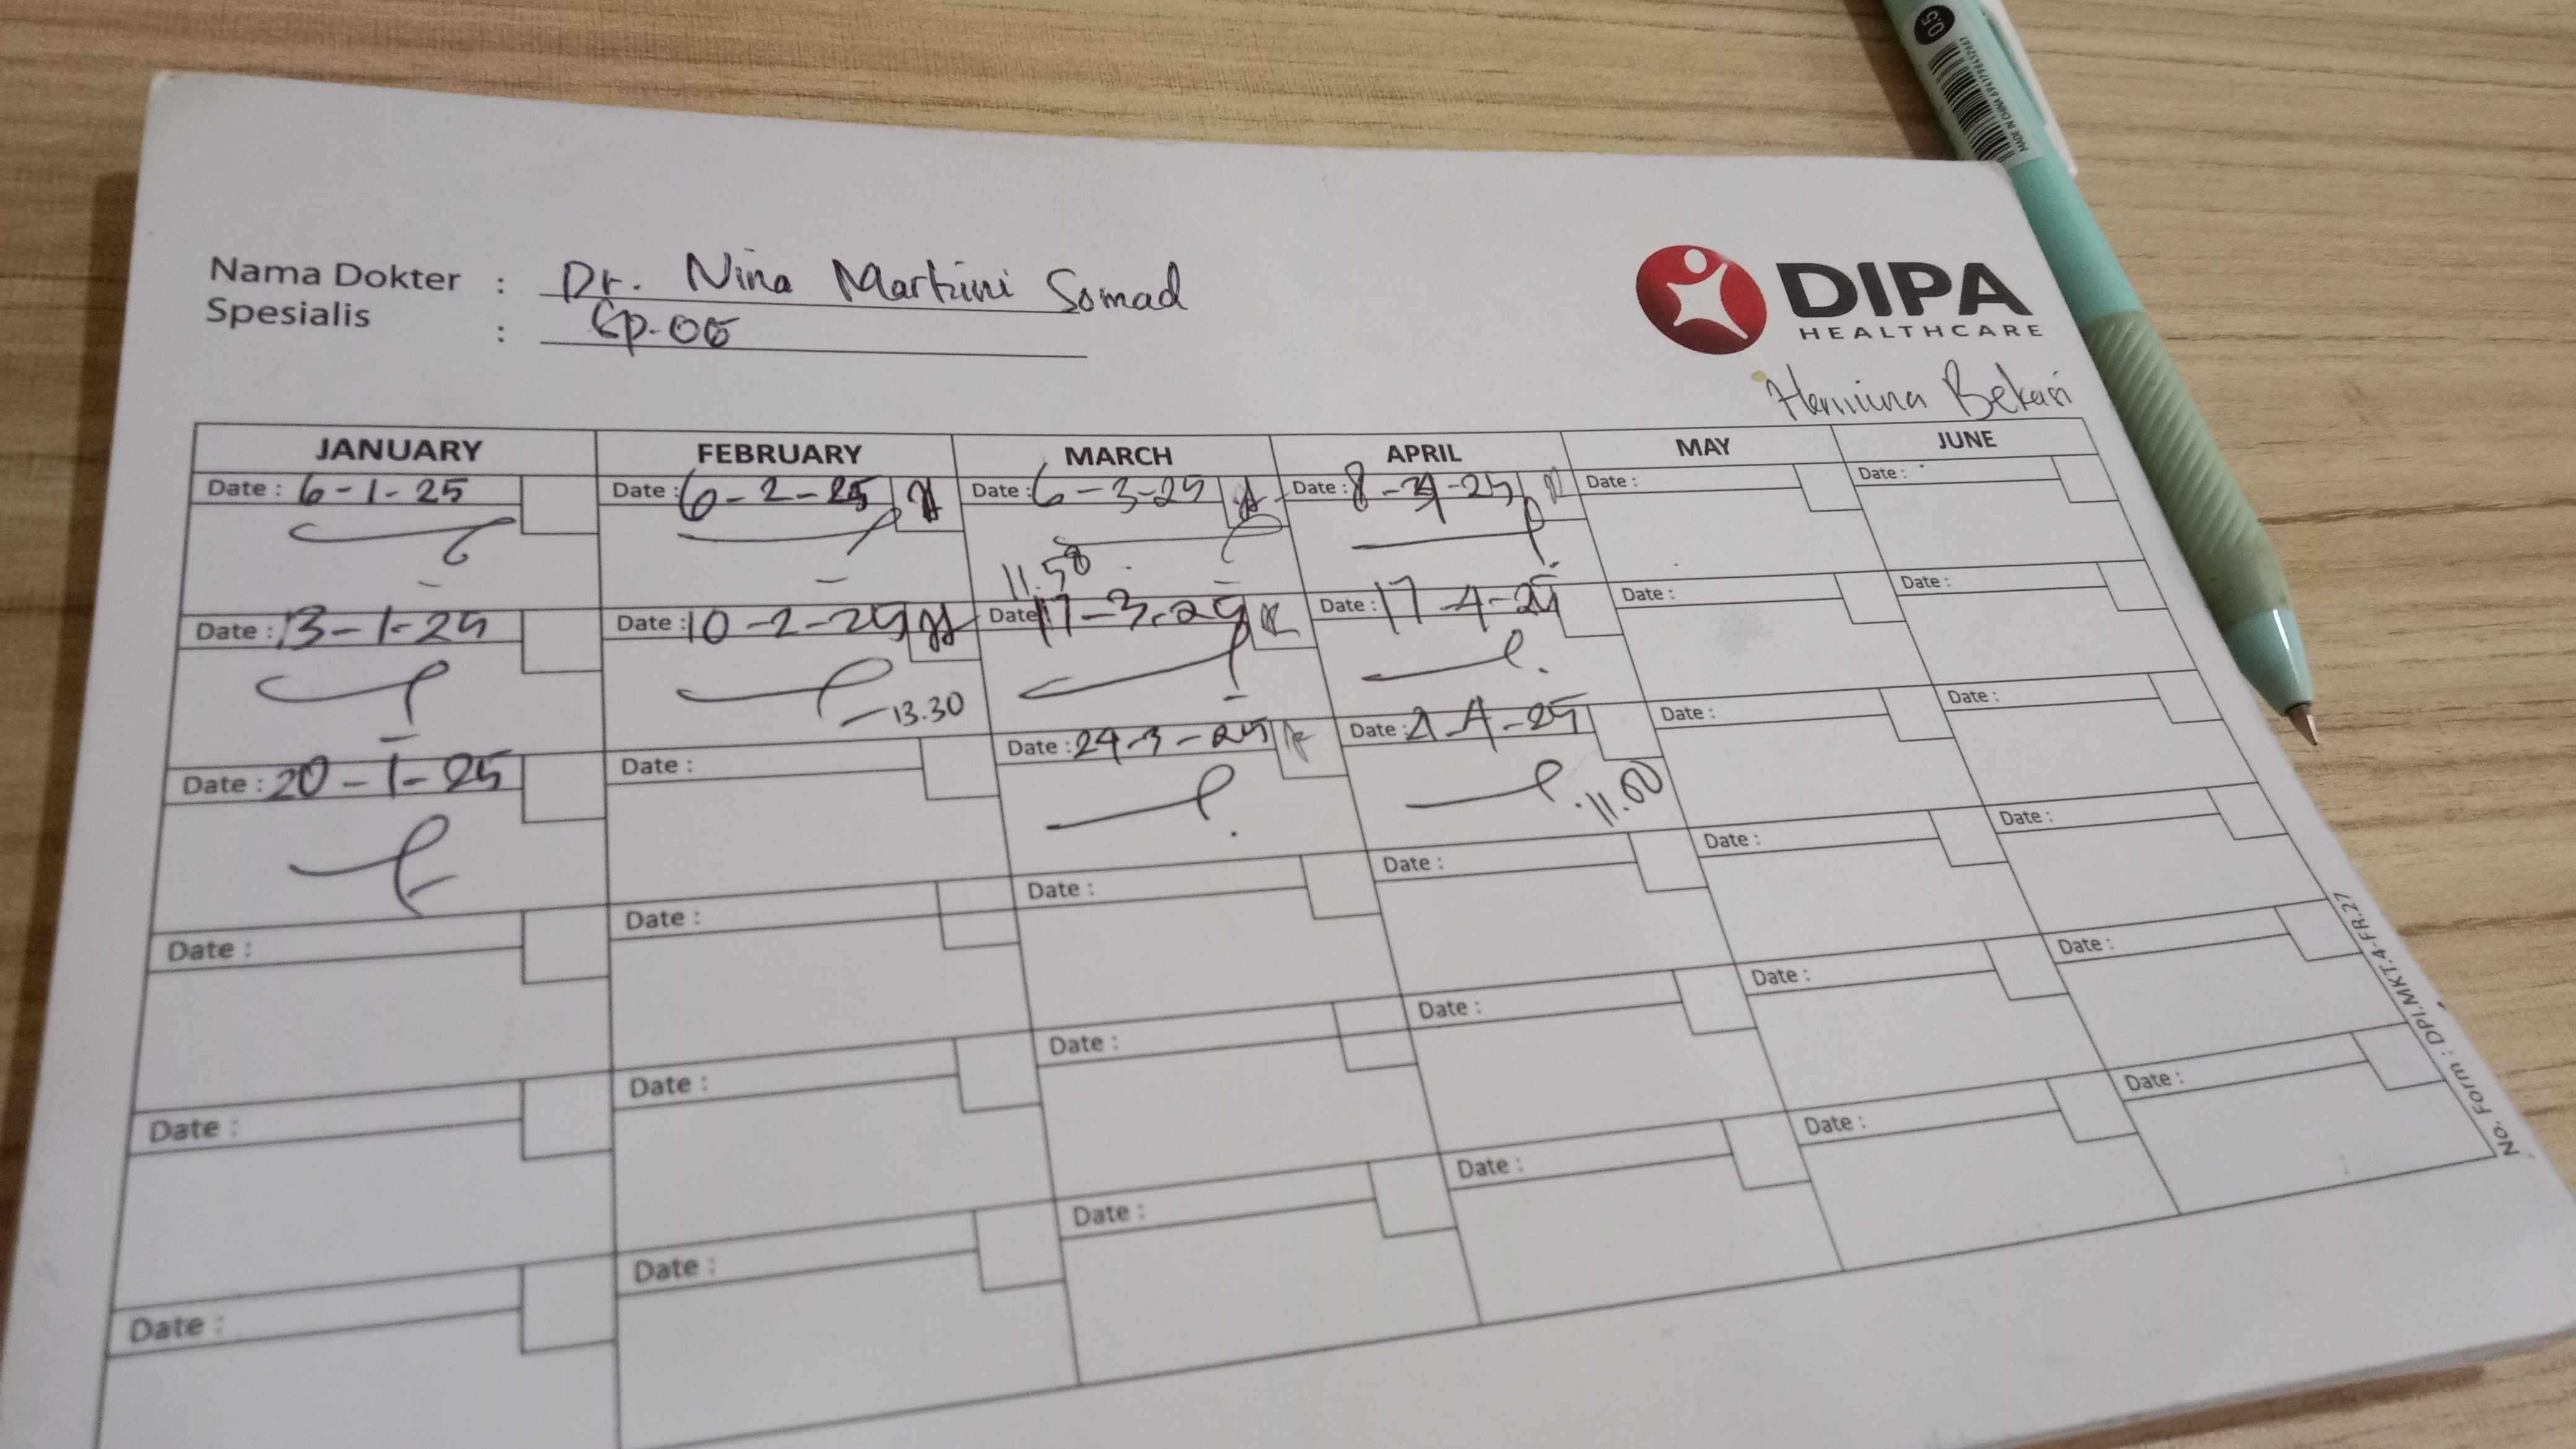 0.5
MADE IN CHINA
Nama Dokter : Dr. Nina Martini Somad
Spesialis : Sp-OG
DIPA
HEALTHCARE
Hermina Bekasi
JANUARY FEBRUARY MARCH APRIL MAY JUNE
Date : 6-1-25 Date : 6-2-25 Date : 6-3-25 Date : 8-4-25 Date : Date :
11.58
Date : 13-1-25 Date : 10-2-25 Date : 17-3-25 Date : 17-4-25 Date : Date :
13.30
Date : 20-1-25 Date : Date : 24-3-25 Date : 4-25 Date : Date :
11.00
Date : Date : Date : Date : Date : Date :
Date : Date : Date : Date : Date : Date :
Date : Date : Date : Date : Date : Date :
No. Form : DPI.MKT.4-FR.27